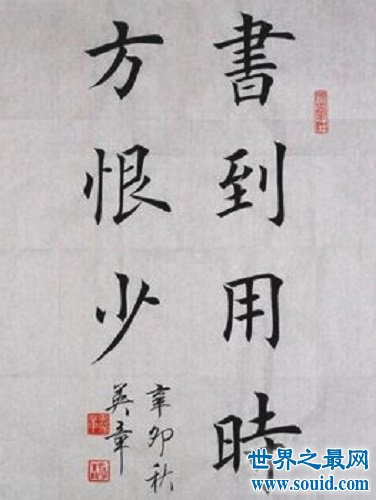 書到用時
方恨少
辛卯秋
英章
世界之最网
www.souid.com